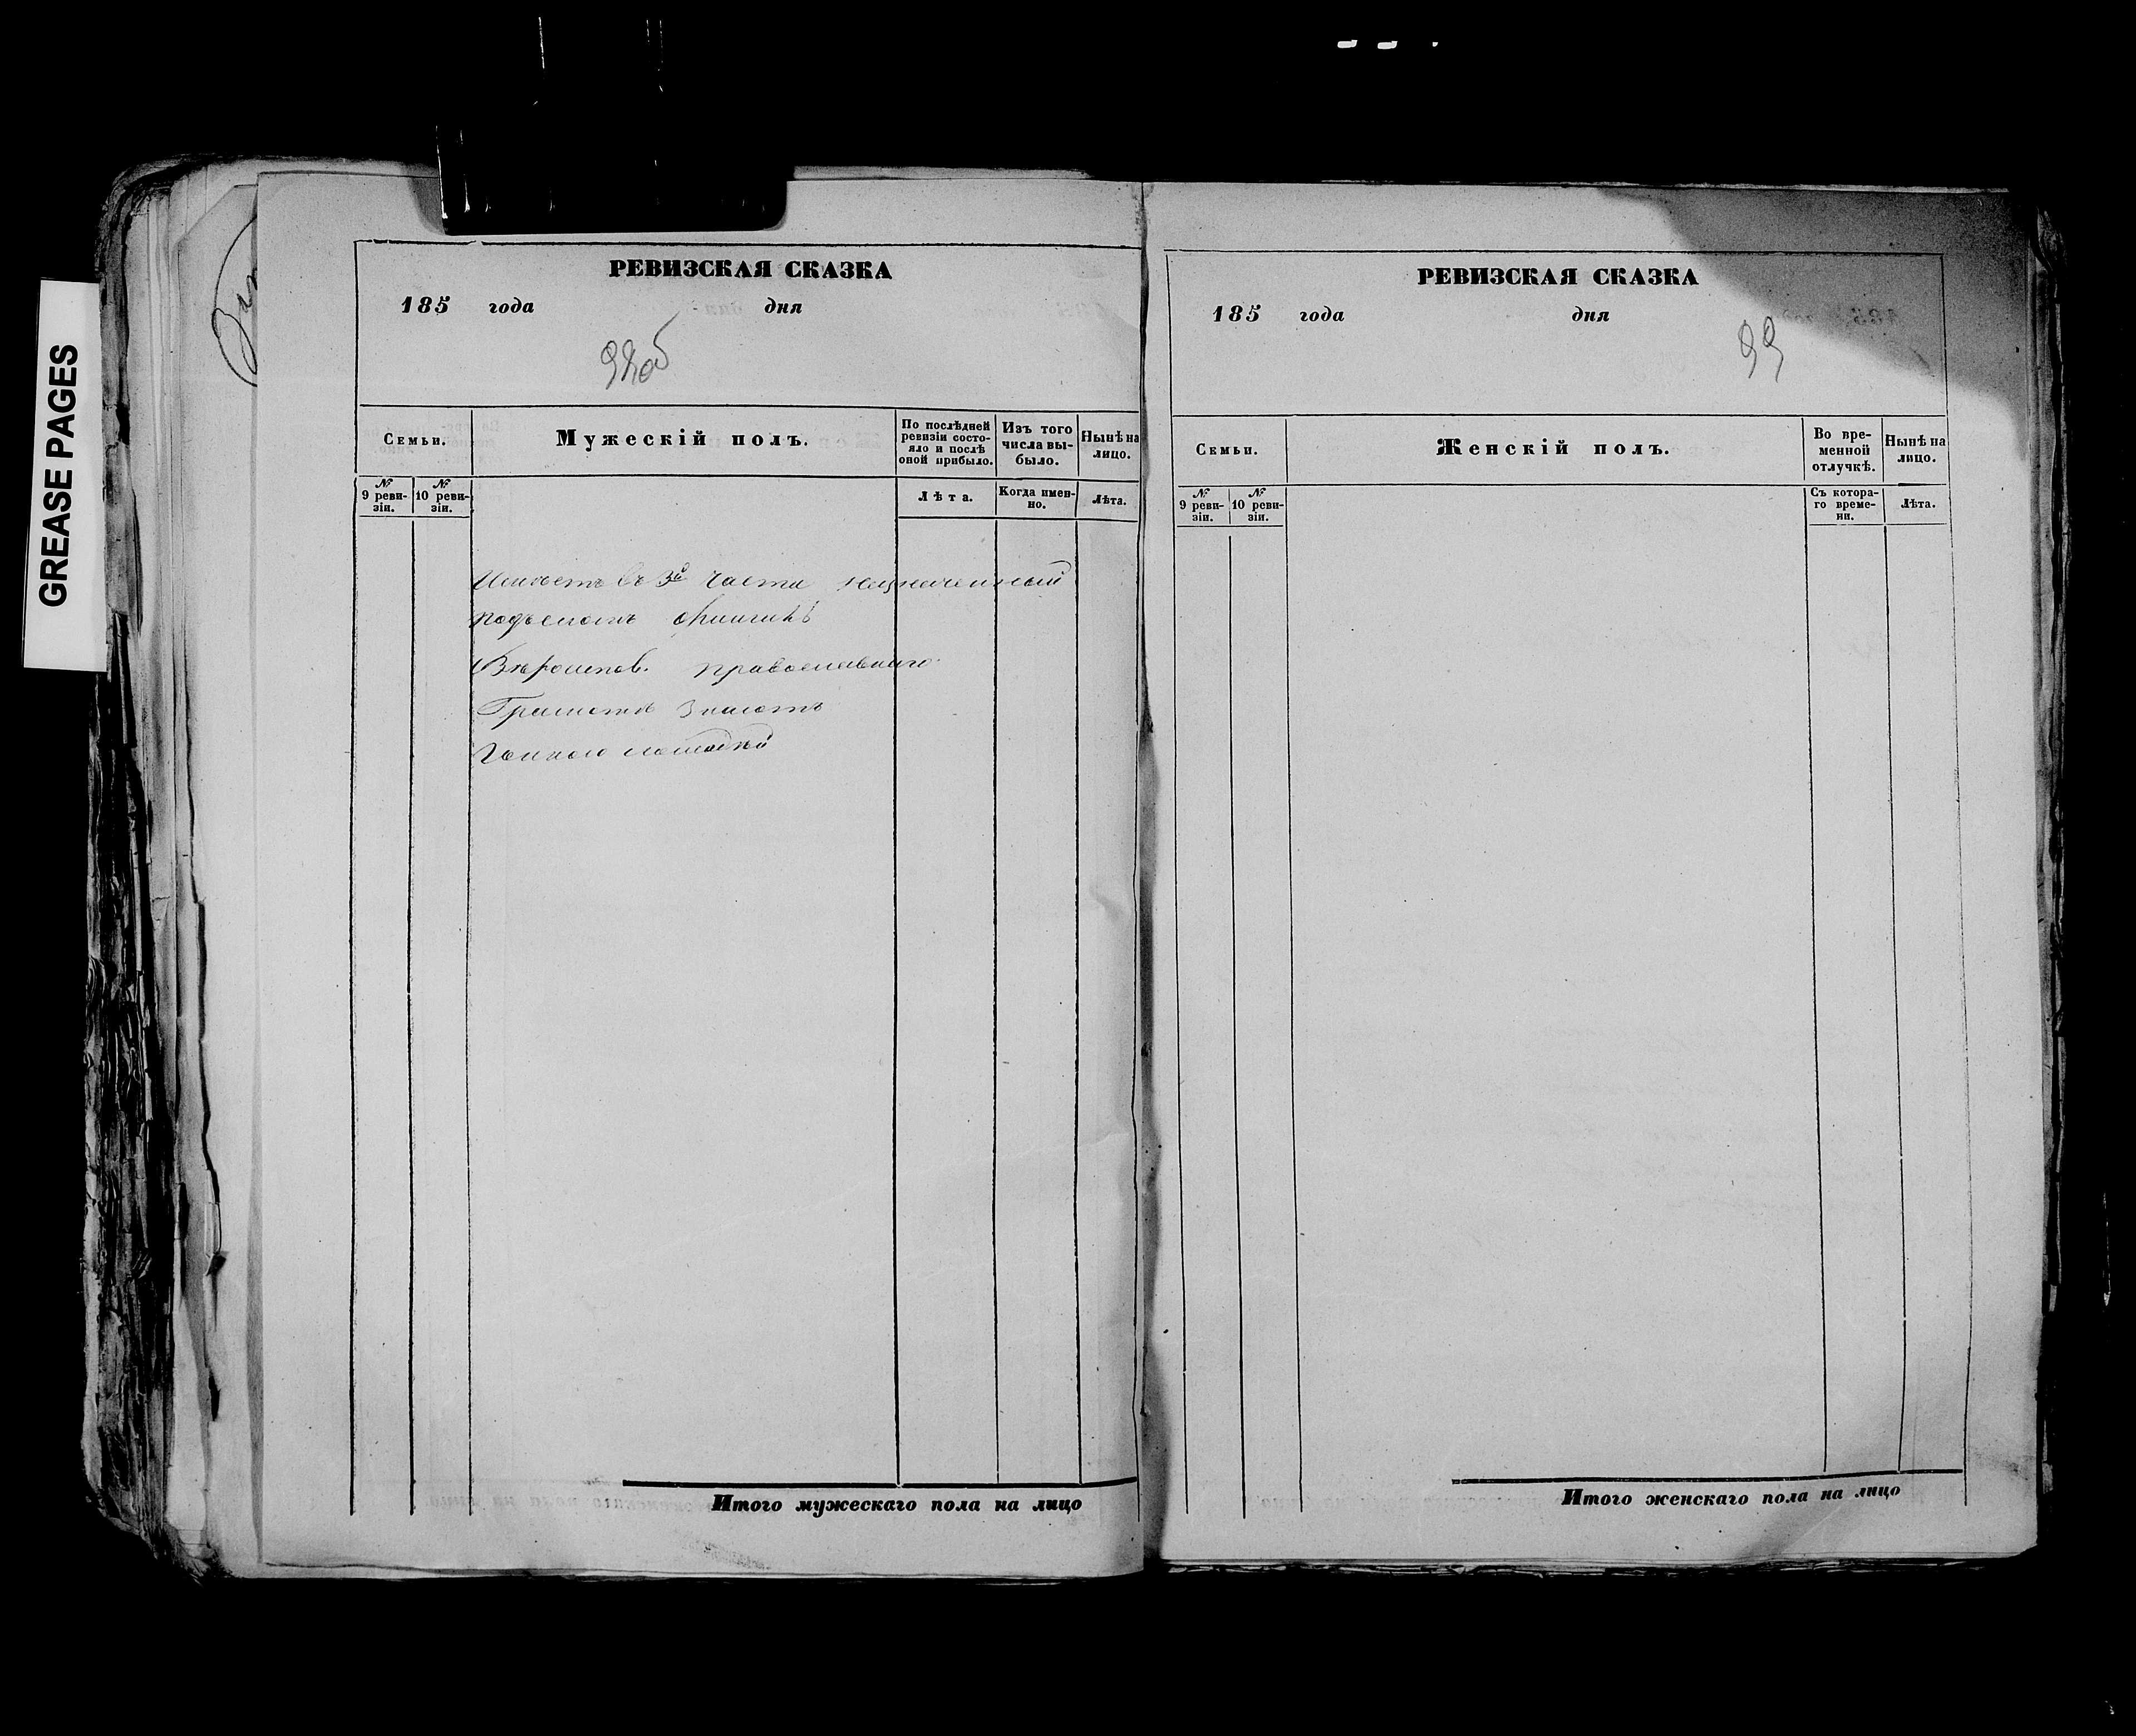 GREASE PAGES
РЕВИЗСКАЯ СКАЗКА
185 года дня
98об
Семьи.
Мужескій полъ.
По послѣдней ревизіи состо-
яло и послѣ оной прибыло.
Изъ того числа вы-
было.
Нынѣ на лицо.
№ 9 реви-
зіи.
№ 10 реви-
зіи.
Лѣта.
Когда имен-
но.
Лѣта.
въ 3й части
Вѣроисповѣд. православнаго
Грамотѣ знаютъ
Итого мужескаго пола на лицо
РЕВИЗСКАЯ СКАЗКА
185 года дня
99
Семьи.
Женскій полъ.
Во вре-
менной
отлучкѣ.
Нынѣ на лицо.
№ 9 реви-
зіи.
№ 10 реви-
зіи.
Съ котора-
го време-
ни.
Лѣта.
Итого женскаго пола на лицо